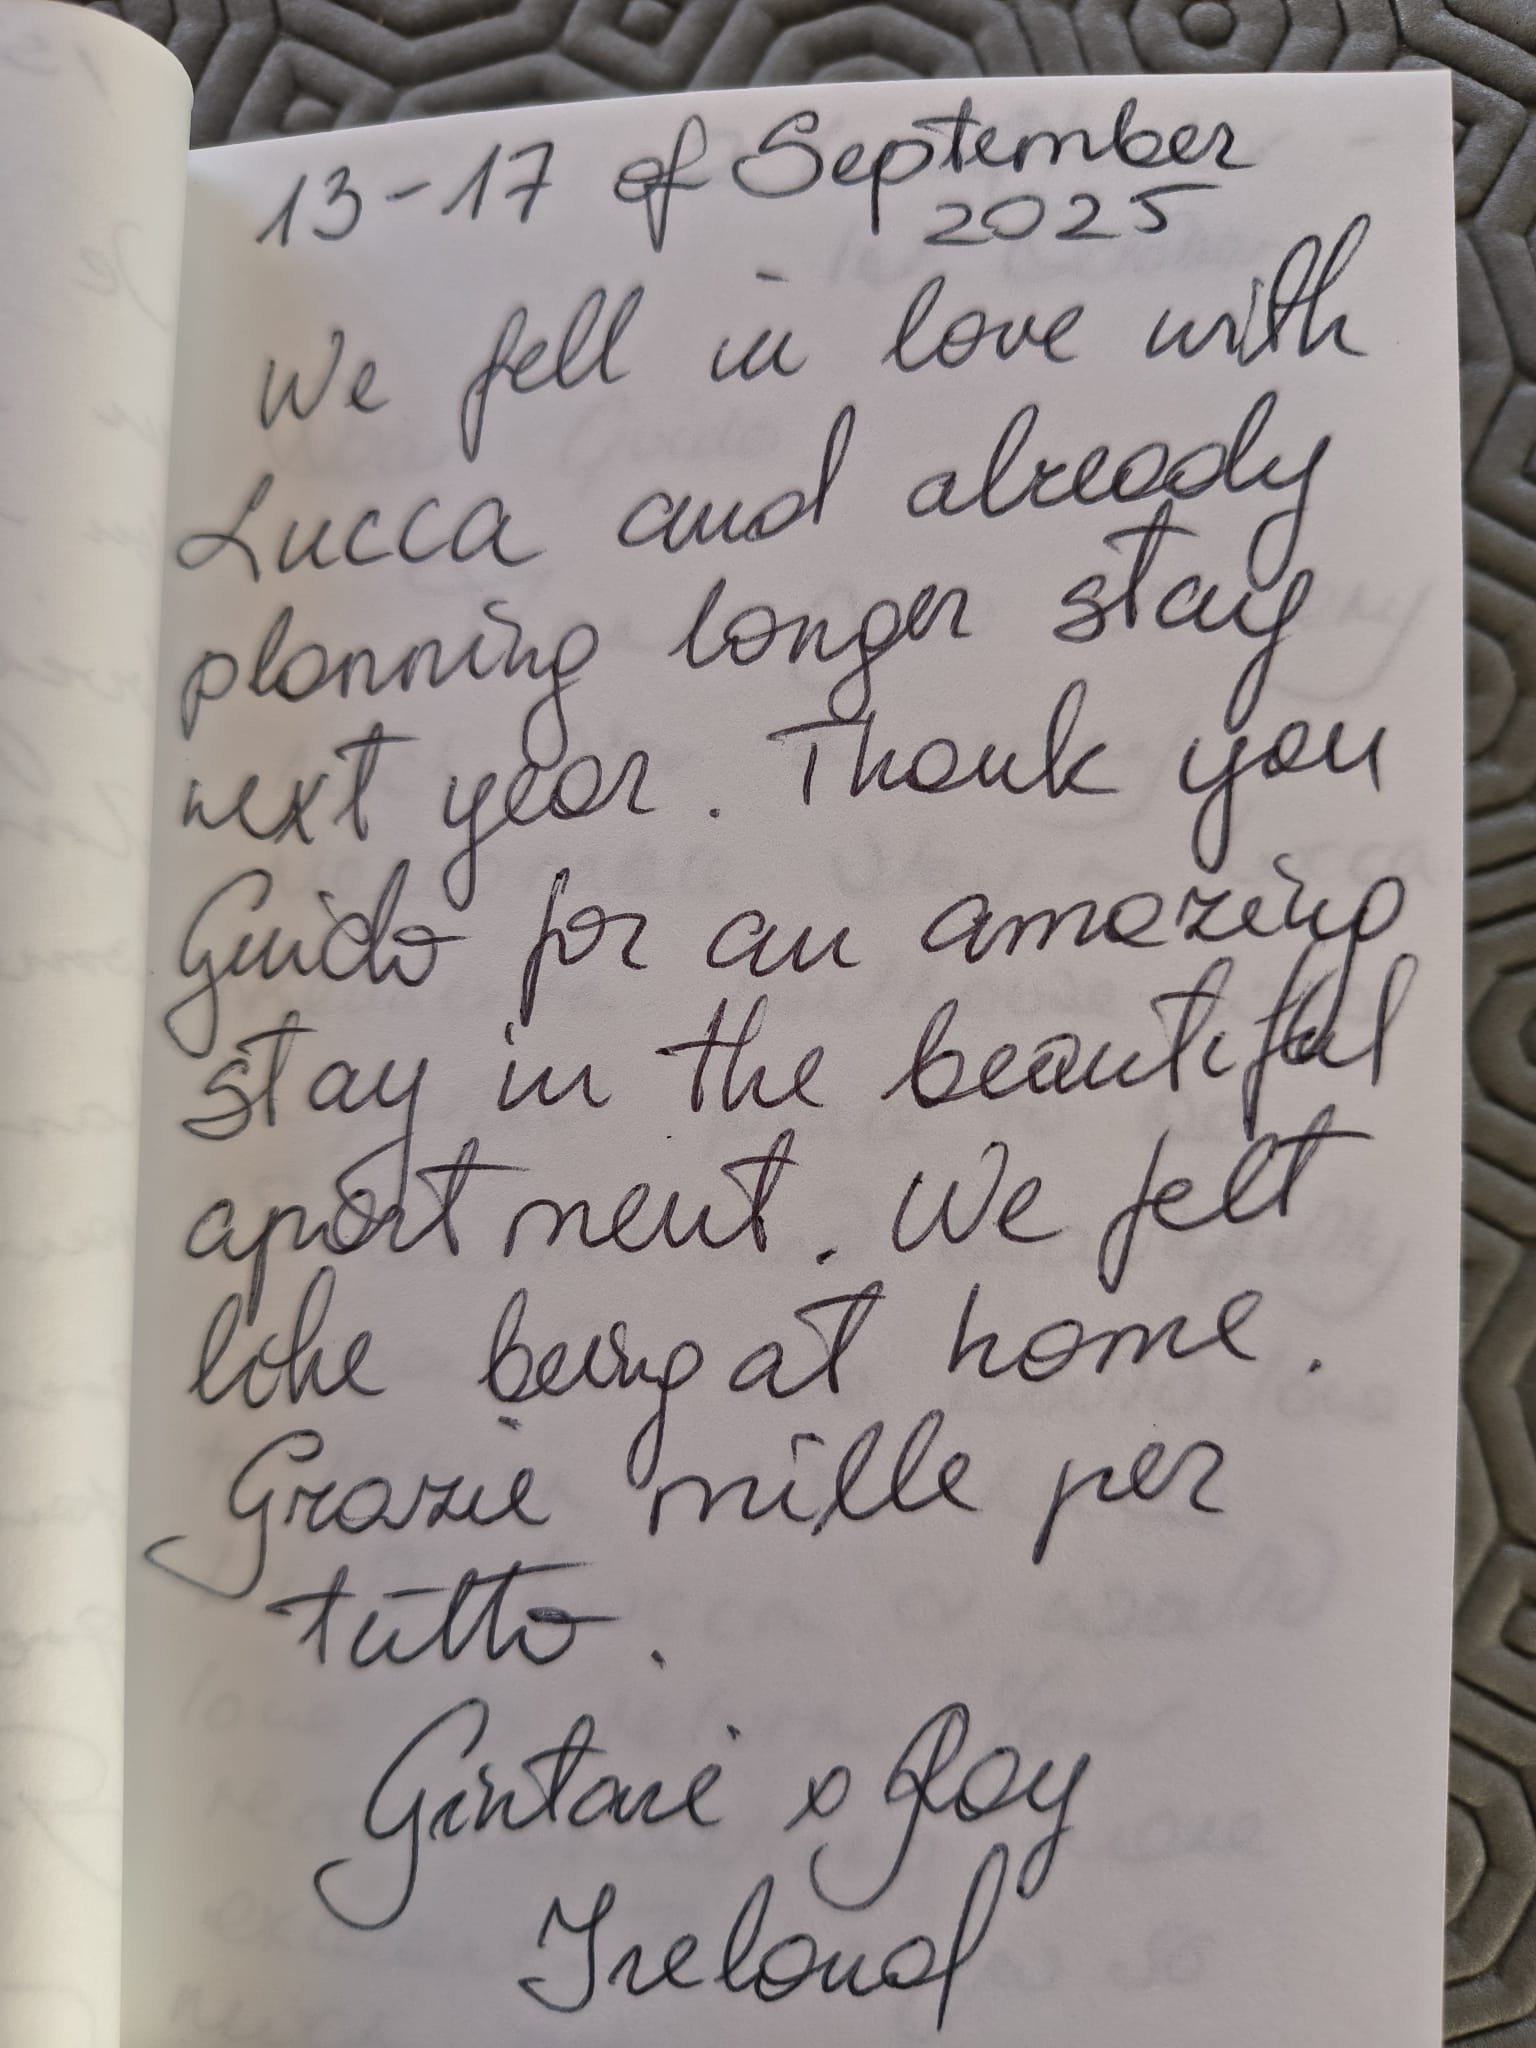 13-17 of September
2025
We fell in love with
Lucca and already
planning longer stay
next year. Thank you
Guido for an amazing
stay in the beautiful
apartment. We felt
like being at home.
Grazie mille per
tutto.
Gintarė & Roy
Ireland